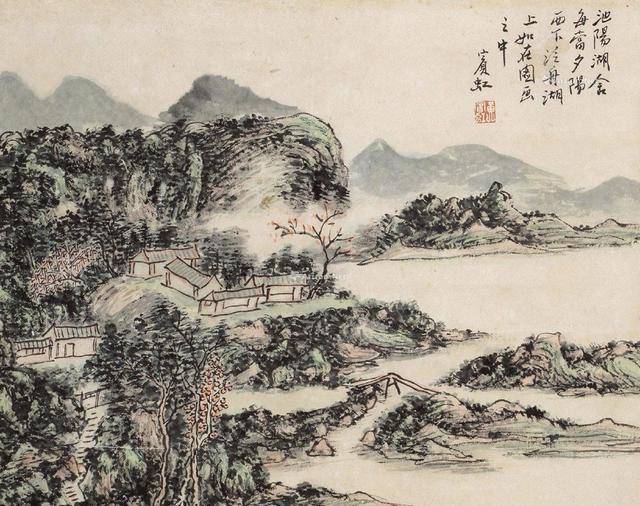 池陽湖舍
每當夕陽
西下泛舟湖
上如在園画
之中
賓虹